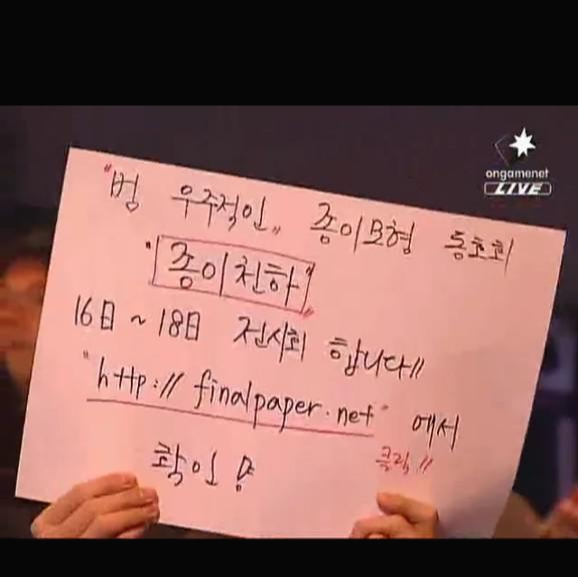 ongamenet
LIVE
"범 우주적인„ 종이모형 동호회
"종이천하"
16日 ~ 18日 전시회 합니다//
"http://finalpaper.net" 에서
클릭!!
확인!